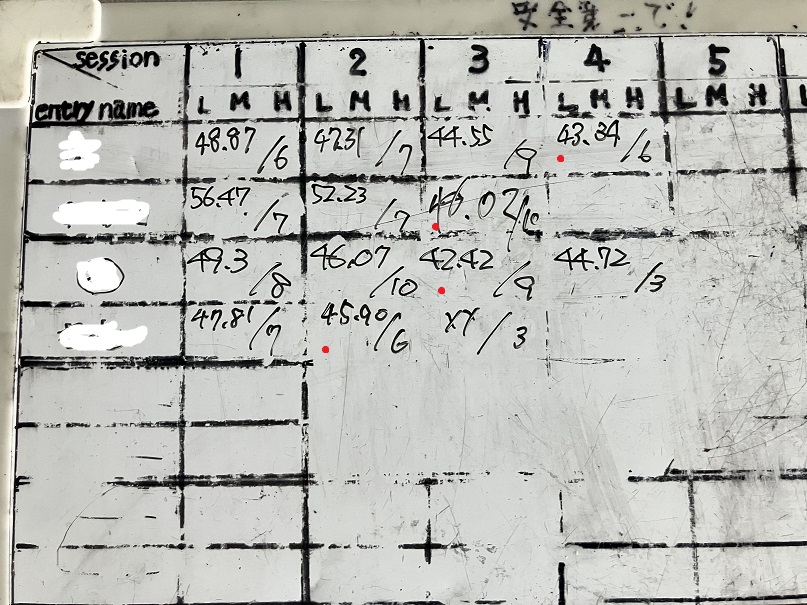 安全第一で!
session 1 2 3 4 5
entry name L M H L M H L M H L M H L M H L
48.87/6 47.31/7 44.55/9 43.34/6
56.47/7 52.23/7
49.3/8 46.07/10 42.42/9 44.72/3
47.81/7 45.90/6 XX/3